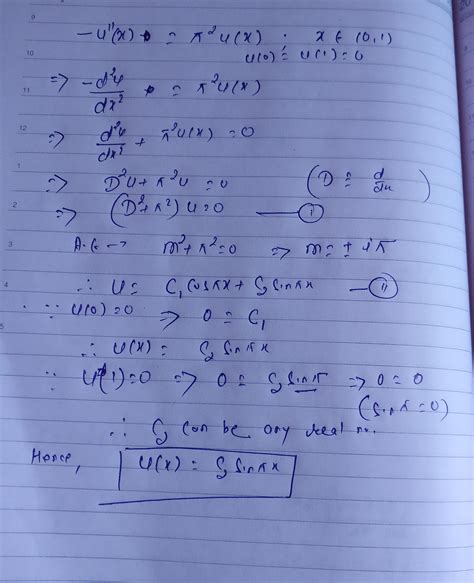 9
-u''(x) = π²u(x) ; x ∈ (0,1)
10
u(0) = u(1) = 0
⇒ -d²u/dx² = π²u(x)
11
12
⇒ d²u/dx² + π²u(x) = 0
1
⇒ D²u + π²u = 0 (D ≡ d/dx)
2
⇒ (D² + π²) u = 0 —— (I)
3
A.E → m² + π² = 0 ⇒ m = ± iπ
4
∴ u = C₁ cosπx + C₂ sinπx —— (II)
∵ u(0) = 0 ⇒ 0 = C₁
5
∴ u(x) = C₂ sinπx
∵ u(1) = 0 ⇒ 0 = C₂ sinπ ⇒ 0 = 0
(sinπ = 0)
∴ C₂ can be any real no.
Hence, u(x) = C₂ sinπx